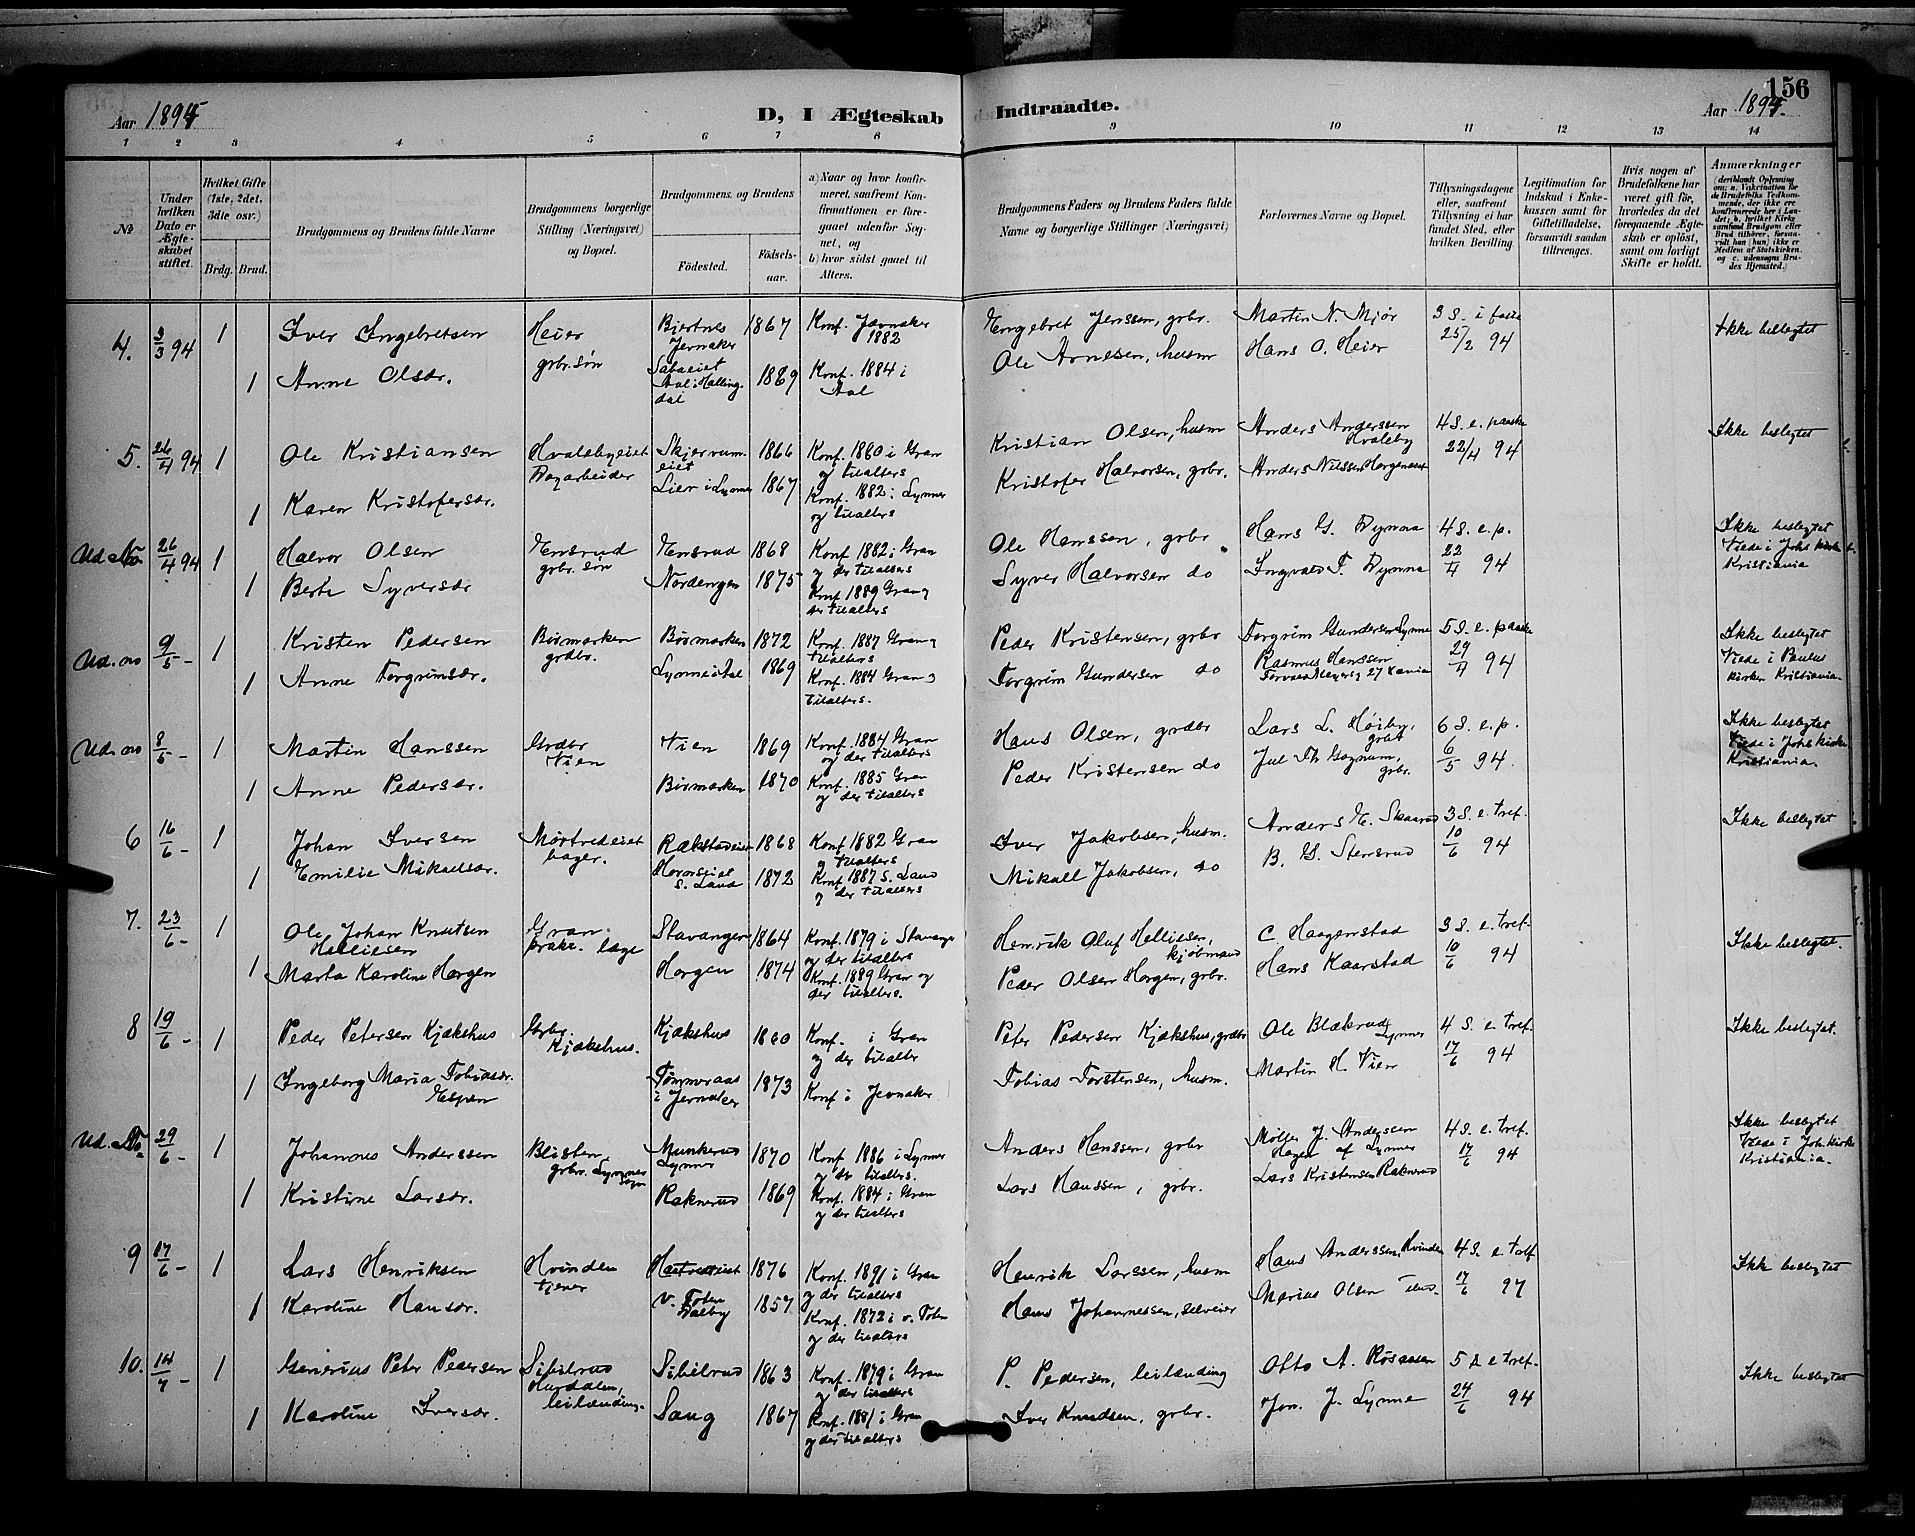 156
Aar 1894
D, I Ægteskab Indtraadte.
Aar 1894.
1 2 3 4 5 6 7 8 9 10 11 12 13 14
№
Under hvilken Dato er Ægteskabet stiftet.
Hvilket Gifte (1ste, 2det, 3die osv.)
Brdg. Brud.
Brudgommens og Brudens fulde Navne
Brudgommens borgerlige Stilling (Næringsvei) og Bopæl.
Brudgommens og Brudens
Födested.
Födselsaar.
a) Naar og hvor konfirmeret, saafremt Konfirmationen er foregaaet udenfor Sognet, og
b) hvor sidst gaaet til Alters.
Brudgommens Faders og Brudens Faders fulde Navne og borgerlige Stillinger (Næringsvei)
Forlovernes Navne og Bopæl.
Tillysningsdagene eller, saafremt Tillysning ei har fundet Sted, efter hvilken Bevilling.
Legitimation for Indskud i Enkekassen samt for Giftetilladelse, forsaavidt saadan tiltrænges.
Hvis nogen af Brudefolkene har været gift för, hvorledes da det foregaaende Ægteskab er oplöst, samt om lovligt Skifte er holdt.
Anmærkninger
(deriblandt Oplysning om: a. Vakcination for de Brudefolks Vedkommende, der ikke ere konfirmerede her i Landet; b. hvilket Kirkesamfund Brudgom eller Brud tilhörer, forsaavidt han (hun) ikke er Medlem af Statskirken, og c. udensogns Brudes Hjemsted.)
4. 3/3 94 1 Iver Ingebretsen Heier Bjertnes Jevnaker 1867 Konf. Jevnaker 1882 Engebret Jenssen, grbr. Martin N. Mjør 3 S. i faste Ikke beslegtet
grbr. søn
1 Anne Olsdr. Aal i Hallingdal 1869 Konf. 1884 i Aal Ole Arnesen, husm Hans O. Heier 25/2 94
5. 26/4 94 1 Ole Kristiansen Hvalebyeiet Skjervumeiet 1866 Konf. 1880 i Gran og tilalters Kristian Olsen, husm Anders Anderssen Hvaleby 4 S. e. paaske Ikke beslegtet
Dagarbeider
1 Karen Kristofersdr. Lier i Lynner 1867 Konf. 1882 i Lynner og tilalters Kristofer Halvorsen, grbr. Anders Nilssen Horgenseiet 22/4 94
Ud. No 26/4 94 1 Halvor Olsen Ensrud Ensrud 1868 Konf. 1882 i Gran og der tilalters Ole Hanssen, grbr Hans G. Dynna 4 S. e. p. Ikke beslegtet
grbr. søn
1 Berte Syversdr Nordengen 1875 Konf. 1889 Gran og der tilalters Syver Halvorsen do Ingvald T. Dynna 22/4 94 Viede i Johs kirke Kristiania
Ud. no 9/5 - 1 Kristen Pedersen Bismarken Bismarken 1872 Konf. 1887 Gran og tilalters Peder Kristensen, grbr Torgrim Gundersen Lynne 5 S. e. paaske Ikke beslegtet
grdbr.
1 Anne Torgrimsdr. 1869 Konf. 1884 Gran og tilalters. Torgrim Gundersen do Rasmus Hanssen 29/4 94 Viede i Paulus kirken Kristiania
Ud. no 8/5 - 1 Martin Hanssen Grdbr Vien Vien 1869 Konf. 1884 Gran og der tilalters Hans Olsen, grdbr Lars L. Høiby, grbr 6 S. e. p. Ikke beslegtet
1 Anne Pedersdr. Bismarken 1870 Konf. 1885 Gran og der tilalters Peder Kristensen do Jul Th Gagnum, grbr. 6/5 94. Viede i Johs kirke Kristiania
6 16/6 - 1 Johan Iversen bager. Rækstadeiet 1868 Konf. 1882 Gran og tilalters Iver Jakobsen, husm. Anders E. Skaarud 3 S. e. tref. Ikke beslegtet
1 Emilie Mikalsdr. S. Land 1872 Konf. 1887 S. Land og der tilalters Mikall Jakobsen, do B. G. Stensrud 10/6 94
7. 23/6 - 1 Ole Johan Knutsen Helliesen Gran prakt. læge Stavanger 1864 Konf. 1879 i Stavanger og der tilalters Henrik Oluf Helliesen, kjøbmand C Haagenstad 3 S. e. tref. Ikke beslegtet.
1 Marta Karoline Horgen Horgen 1874 Konf. 1889 Gran og der tilalters. Peder Olsen Horgen, grbr. Hans Kaarstad 10/6 94
8 19/6 - 1 Peder Petersen Kjækshus Grbr. Kjækshus. Kjækshus 1860 Konf. i Gran og der tilalter Peter Pedersen Kjækshus, grdbr Ole Blækrud Lynner 4 S. e tref. Ikke beslegtet.
1 Ingeborg Maria Tobiasdr. Espen i Jevnaker 1873 Konf i Jevnaker Tobias Torstensen, husm. Martin H. Vien 17/6 94
Ud. No 29/6 - 1 Johannes Anderssen Blisten grbr. Lynner Sogn Munkerud Lynner 1870 Konf 1886 i Lynner og der tilalters. Anders Hanssen, grbr Møller J. Anderssen Hagen af Lynner 4 S. e. tref. Ikke beslegtet
1 Kristine Larsdr. Raknerud 1869 Konf. 1884 i Gran og der tilalters Lars Hanssen, grbr. Lars Kristensen Raknerud 17/6 94 Viede i Joh. kirke Kristiania.
9 17/6 - 1 Lars Henriksen Hvinden tjener 1876 Konf. 1891 i Gran og der tilalters Henrik Larssen, husm Hans Anderssen Hvinden 4 S. e tref Ikke beslegtet
1 Karoline Hansdr. V. Toten 1857 Konf. 1872 i v. Toten og der tilalters Hans Johannessen, selveier Marius Olsen 17/6 97
10. 14/7 - 1 Generius Peter Pedersen Sibilrud Hurdalen, leilænding. Sibilrud 1863 Konf. 1879 i Gran og der tilalters P. Pedersen, leilænding Otto A. Røsaasen 5 S e tref. Ikke beslegtet
1 Karoline Iversdr. Saug 1867 Konf. 1881 i Gran og der tilalters Iver Knudsen, grbr. Jon. J. Lynne 24/6 94